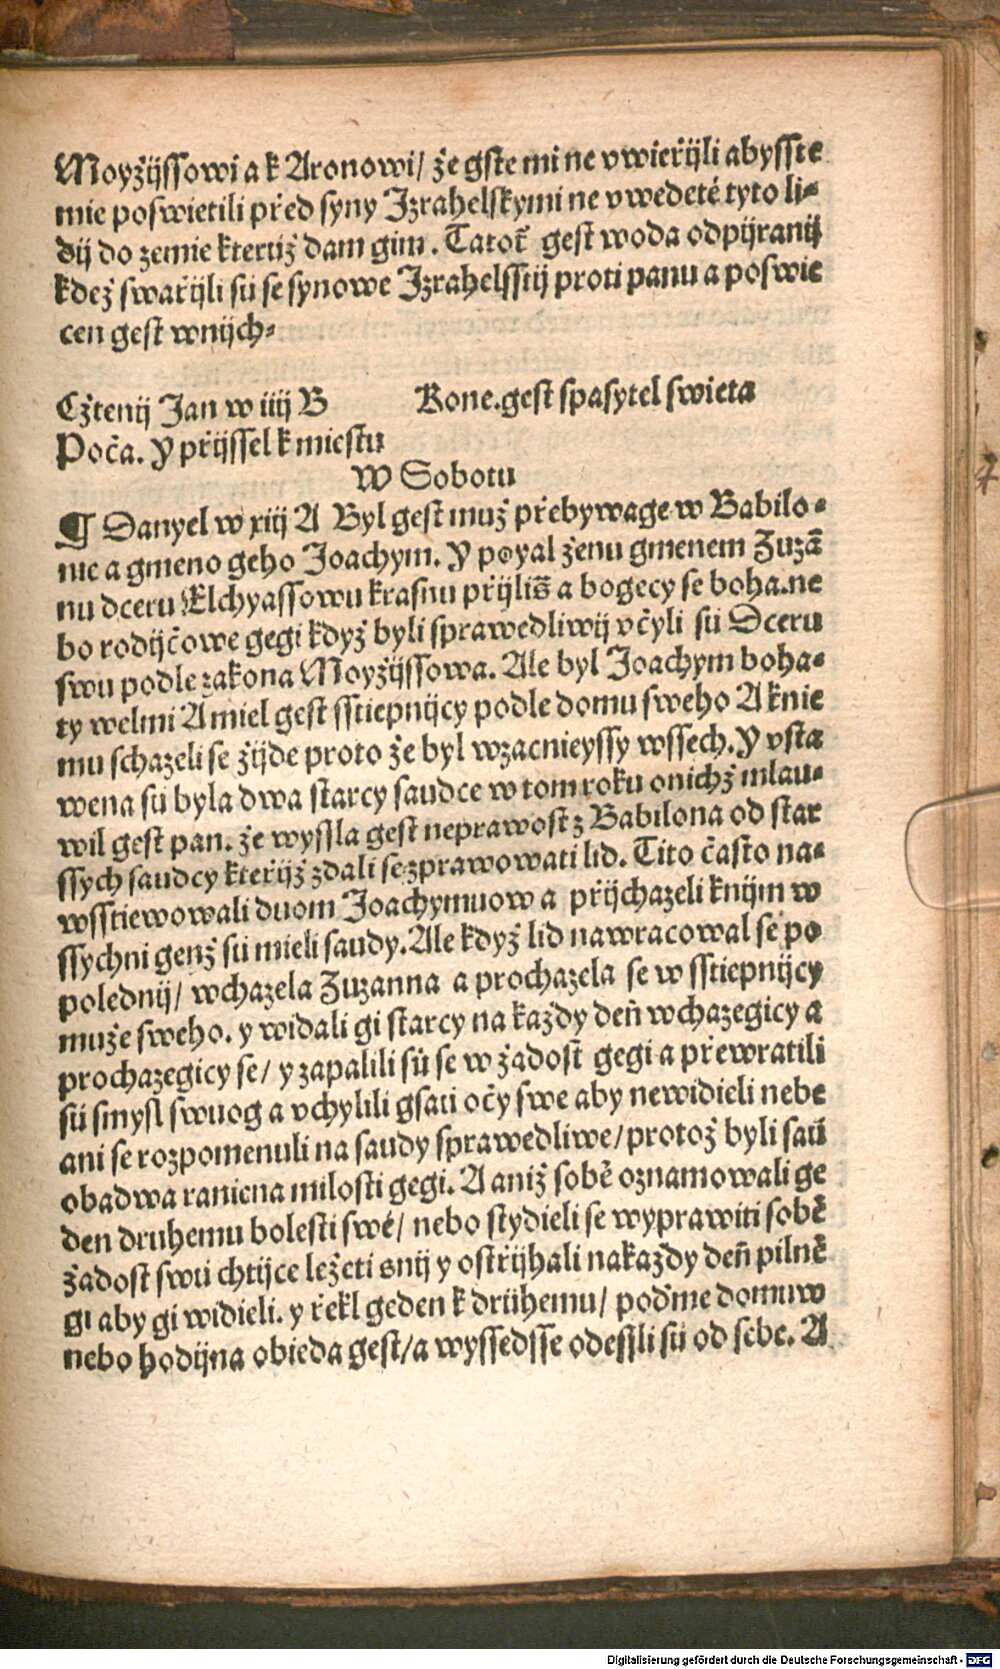 Moyžijssowi a k Aronowi/ že gste mi ne vwieřijli abysste
mie poswietili před syny Izrahelskymi ne vwedeté tyto li⸗
dij do zemie kteruž dam gim. Tatoť gest woda odpijranij
kdež swařijli sú se synowe Izrahelsstij proti panu a poswie
cen gest wnijch⸗
Cžtenij Jan w iiij B Kone.gest spasytel swieta
Poča. Y přijssel k miestu
W Sobotu
¶ Danyel w xiij A Byl gest muž přebywage w Babilo⸗
nie a gmeno geho Joachym. Y poyal ženu gmenem Zuzā
nu dceru Elchyassowu krasnu přijliš a bogecy se boha.ne
bo rodijčowe gegi když byli sprawedliwij včyli sú Dceru
swu podle zakona Moyžijssowa. Ale byl Joachym boha⸗
ty welmi A miel gest sstiepnijcy podle domu sweho A knie
mu schazeli se žijde proto že byl wzacnieyssy wssech. Y vsta
wena sú byla dwa starcy saudce w tom roku onichž mlau⸗
wil gest pan. že wyssla gest neprawost z Babilona od star
ssych saudcy kteřijž zdali se zprawowati lid. Tito často na⸗
wsstiewowali duom Joachymuow a přijchazeli knijm w
ssychni genž sú mieli saudy. Ale když lid nawracowal se po
polednij/ wchazela Zuzanna a prochazela se w sstiepnijcy
muže sweho. y widali gi starcy na každy deň wchazegicy a
prochazegicy se/ y zapalili sú se w žadost gegi a přewratili
sú smysl swuog a vchylili gsau očy swe aby newidieli nebe
ani se rozpomenuli na saudy sprawedliwe/ protož byli saú
obadwa raniena milosti gegi. A aniž sobě oznamowali ge
den druhemu bolesti swé/ nebo stydieli se wyprawiti sobě
žadost swú chtijce ležeti snij y ostřijhali nakaždy deň pilně
gi aby gi widieli. y řekl geden k drúhemu/ poďme domuw
nebo hodijna obieda gest/ a wyssedsse odessli sú od sebe. A
Digitalisierung gefördert durch die Deutsche Forschungsgemeinschaft - DFG